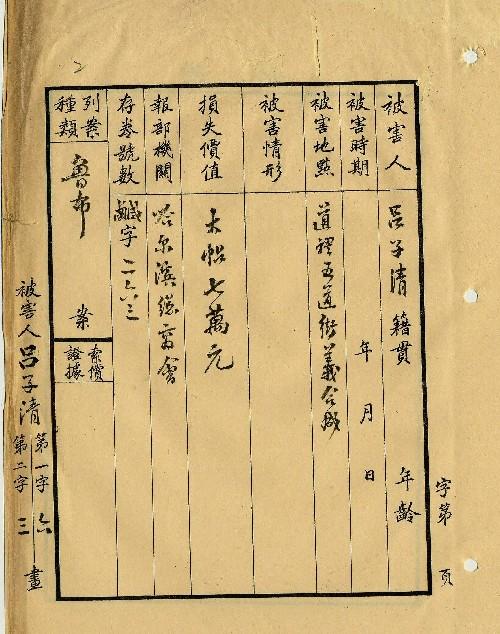 字第 頁
被害人 呂子清 籍貫 年齡
被害時期 年 月 日
被害地點 道裡五道街義合成
被害情形
損失價值 大帖七萬元
報部機關 哈尔濱總商會
存卷號數 鹹字二六三
列案種類 魯布 案
索償證據
被害人呂子清 第一字 六
第二字 三 畫